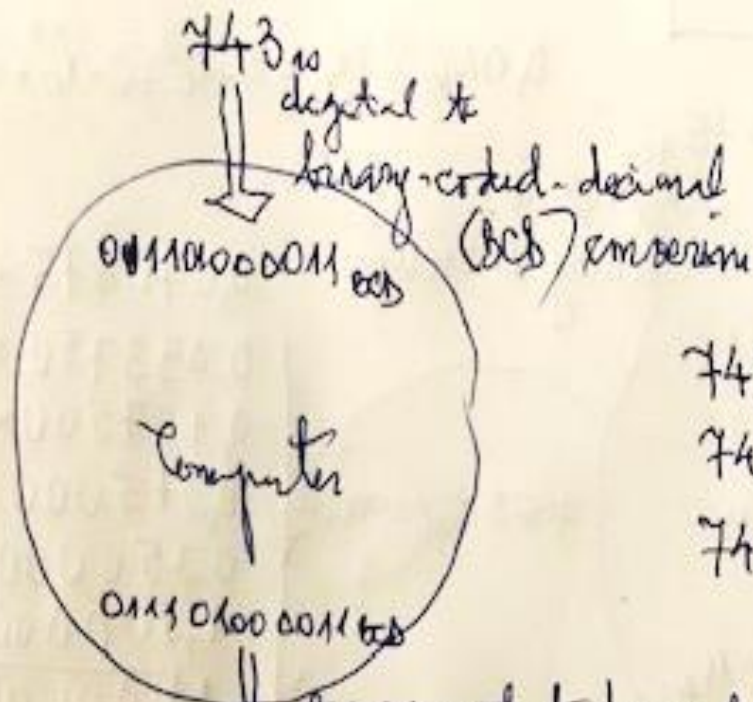 743₁₀
digital to
binary-coded-decimal
(BCD) conversion
011101000011 BCD
74
Computer
74
74
011101000011 BCD